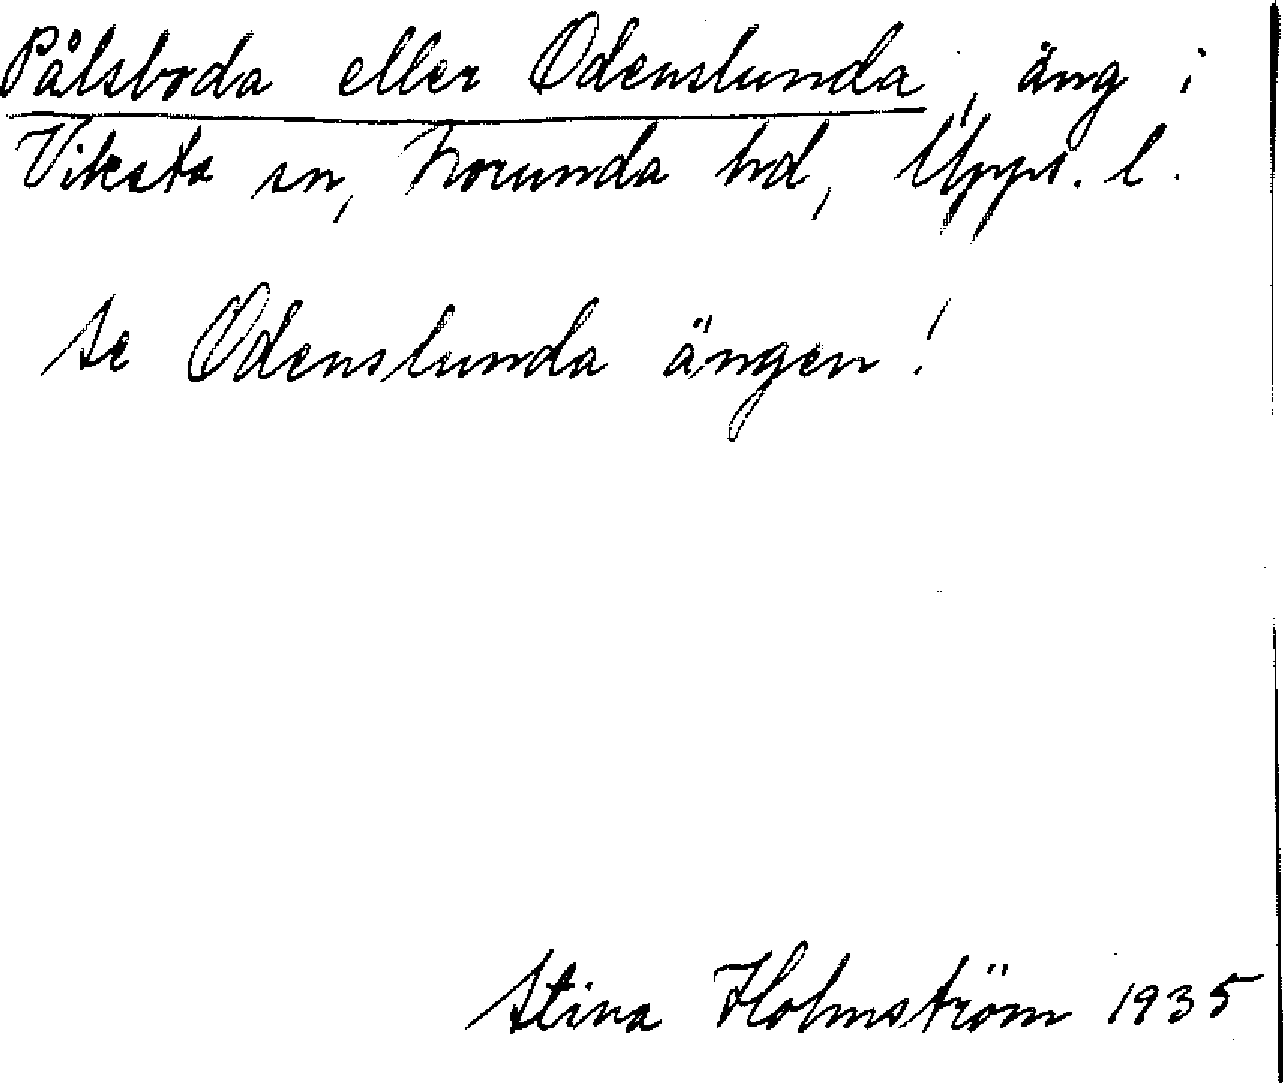 Pålsboda eller Odenslunda, äng i
Viksta sn, Norunda hd, Upps. l.
Se Odenslunda ängen!
Stina Holmström 1935